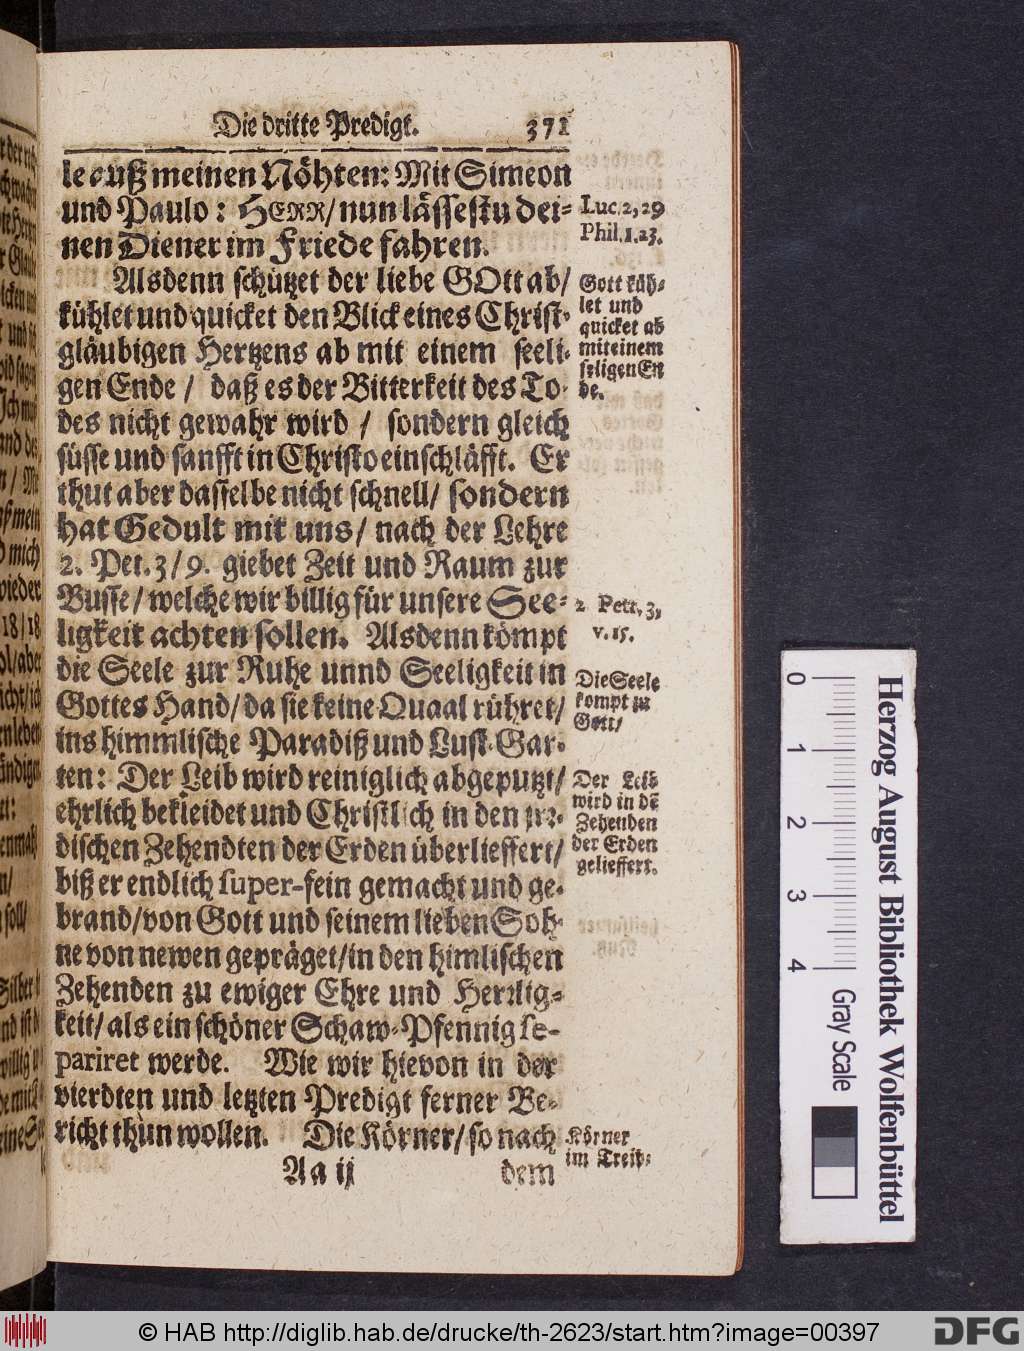 Die dritte Predigt. 371
le auß meinen Nöhten: Mit Simeon
und Paulo: HERR/ nun lässestu dei-
nen Diener im Friede fahren.
Alsdenn schützet der liebe GOtt ab/
kühlet und quicket den Blick eines Christ-
gläubigen Hertzens ab mit einem seeli-
gen Ende / daß es der Bitterkeit des To-
des nicht gewahr wird / sondern gleich
süsse und sanfft in Christo einschläfft. Er
thut aber dasselbe nicht schnell/ sondern
hat Gedult mit uns/ nach der Lehre
2. Pet. 3/9. giebet Zeit und Raum zur
Busse/ welche wir billig für unsere See-
ligkeit achten sollen. Alsdenn kömpt
die Seele zur Ruhe unnd Seeligkeit in
Gottes Hand/ da sie keine Quaal rühret/
ins himmlische Paradiß und Lust-Gar-
ten: Der Leib wird reiniglich abgeputzt/
ehrlich bekleidet und Christlich in den irr-
dischen Zehendten der Erden überlieffert/
biß er endlich super-fein gemacht und ge-
brand/ von Gott und seinem lieben Soh-
ne von newen gepräget/ in den himlischen
Zehenden zu ewiger Ehre und Herrlig-
keit/ als ein schöner Schaw-Pfennig se-
pariret werde. Wie wir hievon in der
vierdten und letzten Predigt ferner Be-
richt thun wollen. Die Körner/ so nach
Aa ij dem
Luc. 2, 29
Phil. 1. 23.
Gott küh-
let und
quicket ab
mit einem
seligen En
de.
2 Petr. 3,
v. 15.
Die Seele
kompt zu
Gott/
Der Leib
wird in dē
Zehenden
der Erden
gelieffert.
Körner
im Treib-
0
1
2
3
4
Herzog August Bibliothek Wolfenbüttel
Gray Scale
© HAB http://diglib.hab.de/drucke/th-2623/start.htm?image=00397
DFG